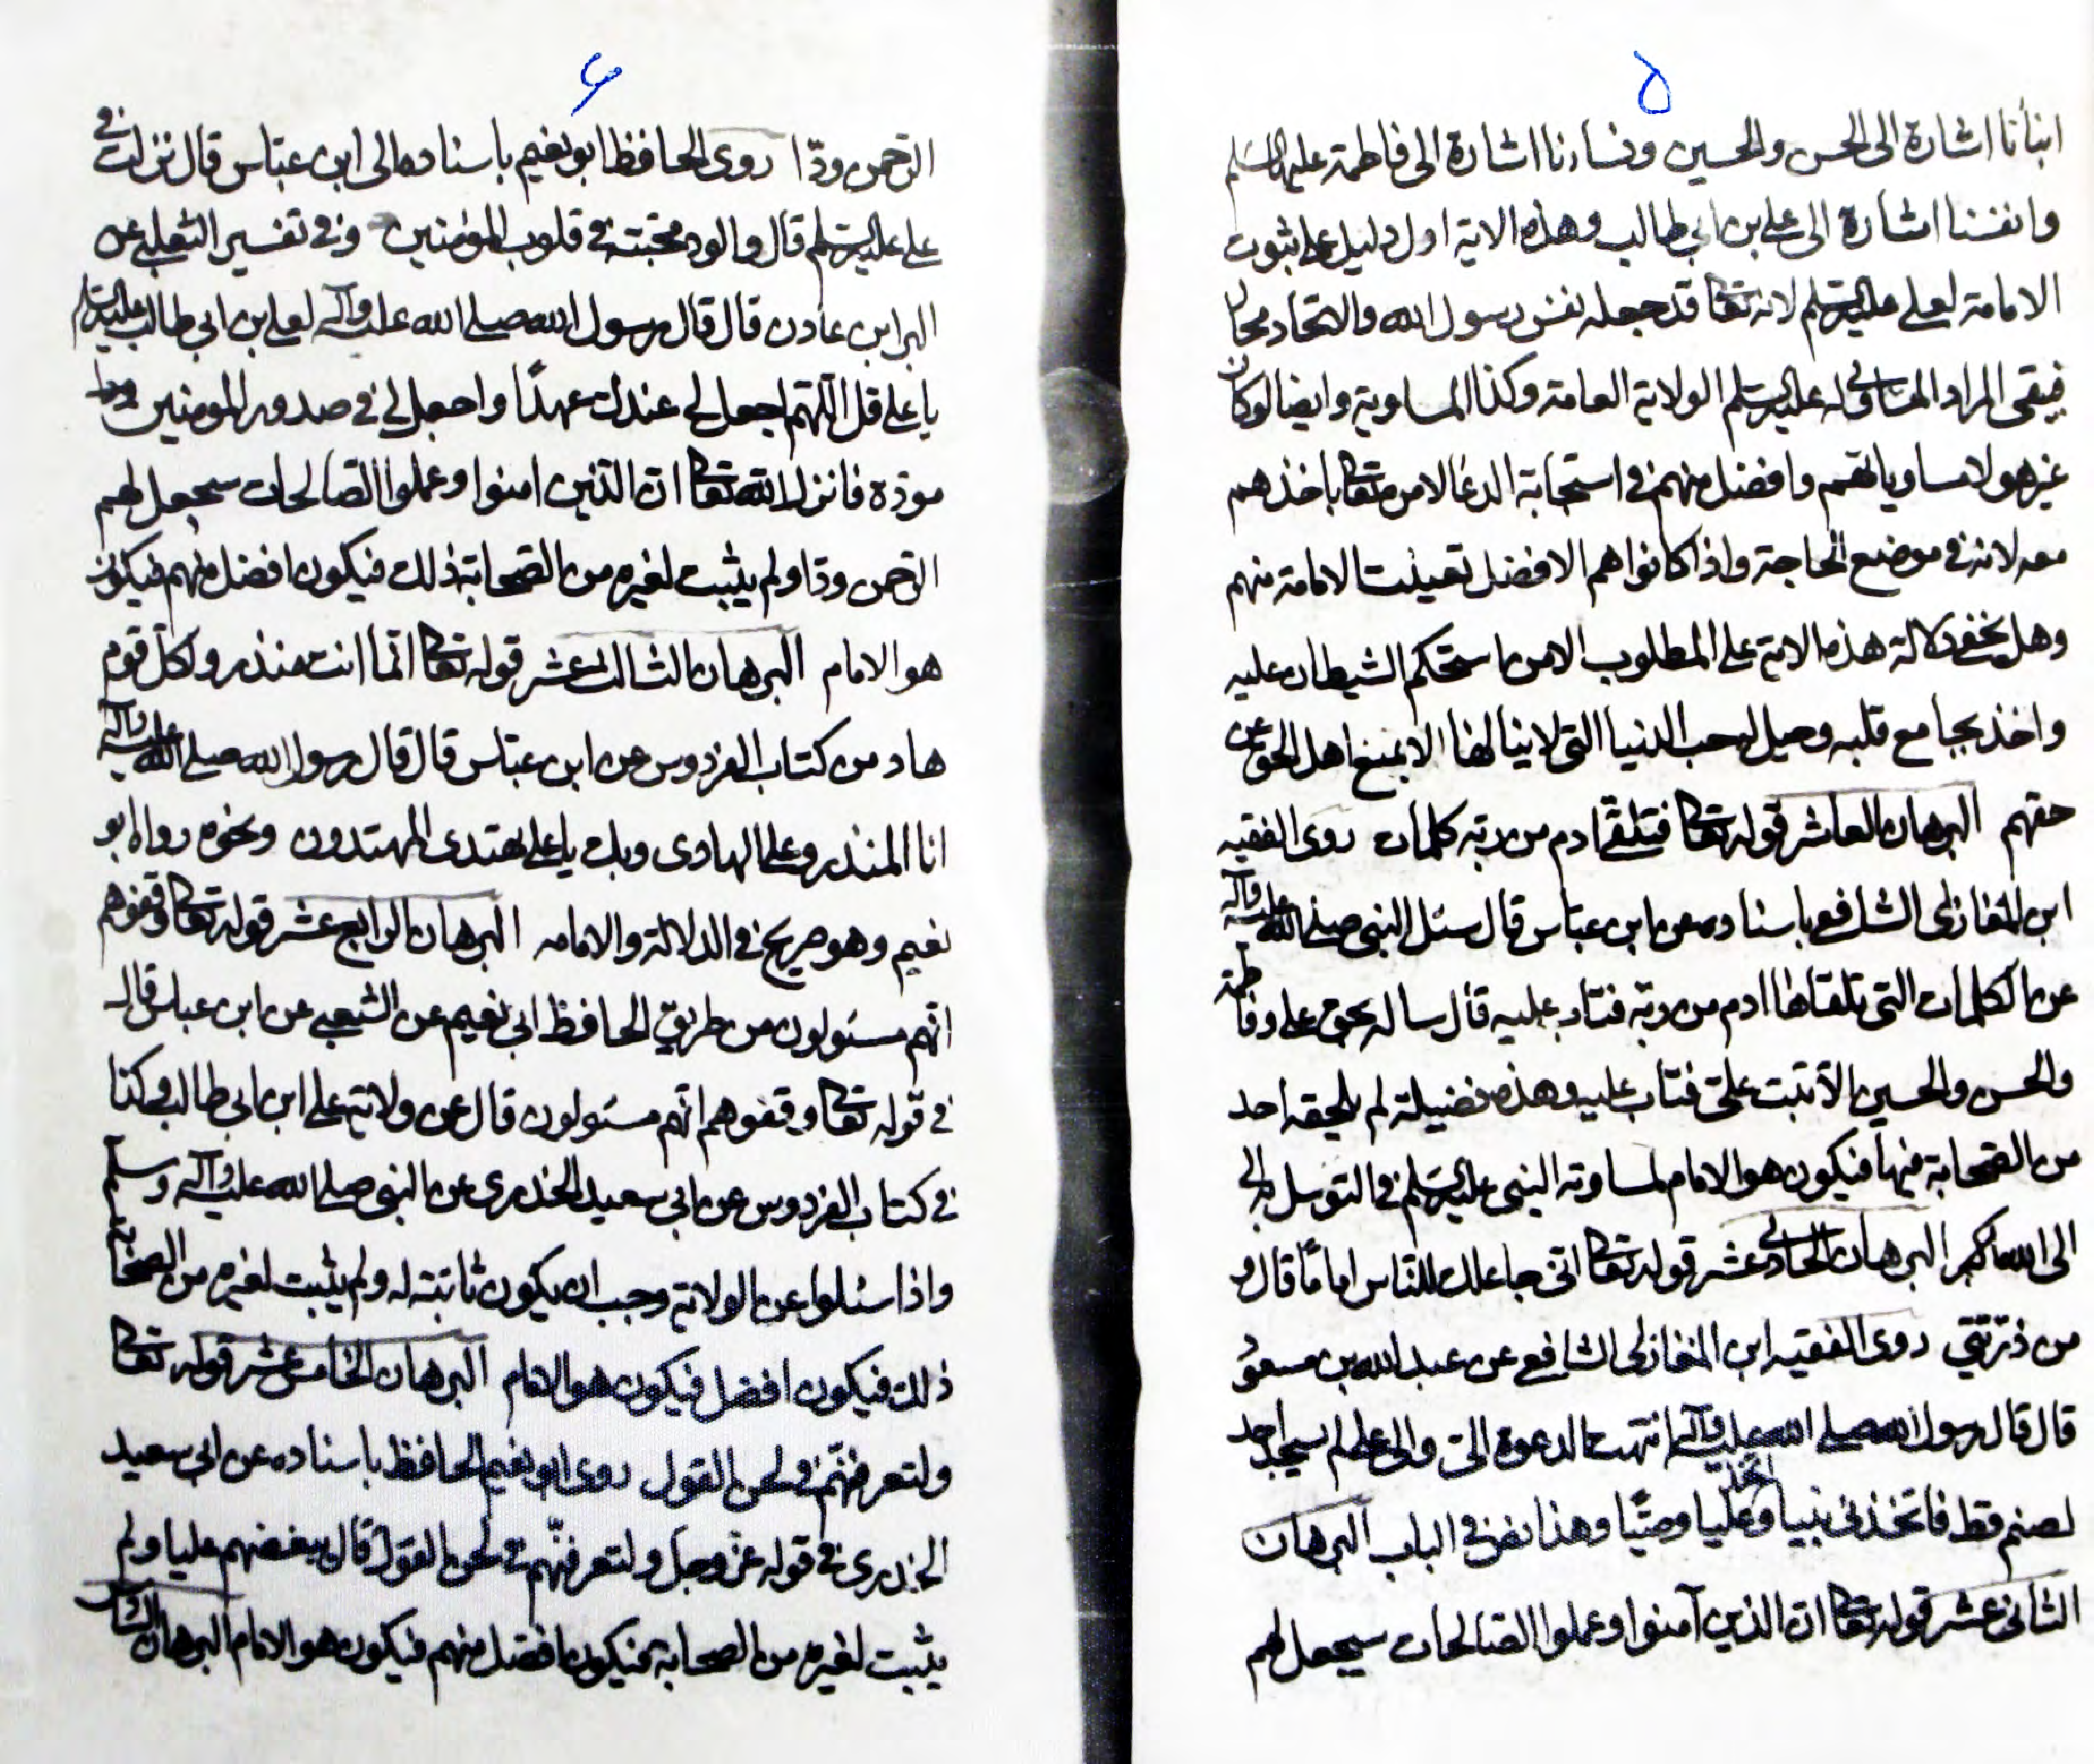 ۵
ابنائنا اشارة الى الحسن والحسين ونساءنا اشارة الى فاطمة عليها السلم
وانفسنا اشارة الى على بن ابى طالب وهذه الاية اول دليل على ثبوت
الامامة لعلى عليه السلم لانه تعا قد جعله نفس رسول الله والاتحاد محال
فيبقى المراد المساوى له عليه السلم الولاية العامة وكذا المساوية وايضا لو كان
غير هولاء مساويا لهم وافضل منهم فى استجابة الدعا لامره تعا باخذهم
معه لانه فى موضع الحاجة واذا كانوا هم الافضل تعينت الامامة منهم
وهل يخفى دلالة هذه الاية على المطلوب الا من استحكم الشيطان عليه
واخذ بمجامع قلبه وحيل له حب الدنيا التى لا ينالها الا بمنع اهل الحق عن
حقهم البرهان العاشر قوله تعا فتلقى ادم من ربه كلمات روى الفقيه
ابن المغازلى الشافعى باسناده عن ابن عباس قال سئل النبى صلى الله عليه وآله
عن الكلمات التى تلقاها ادم من ربه فتاب عليه قال ساله بحق على وفاطمة
والحسن والحسين الا تبت على فتاب عليه وهذه فضيلة لم يلحقه احد
من الصحابة فيها فيكون هو الامام لمساوته النبى عليه السلم فى التوسل به الى
الى الله تعا البرهان الحادى عشر قوله تعا انى جاعلك للناس اماما قال و
من ذريتى روى الفقيه ابن المغازلى الشافعى عن عبد الله بن مسعود
قال قال رسول الله صلى الله عليه وآله انتهت الدعوة الى والى على لم يسجد احد
لصنم قط فاتخذنى نبيا واتخذ عليا وصيا وهذا نص فى الباب البرهان
الثانى عشر قوله تعا ان الذين آمنوا وعملوا الصالحات سيجعل لهم
۶
الرحمن ودا روى الحافظ ابو نعيم باسناده الى ابن عباس قال نزلت فى
على عليه السلم قال والود محبته فى قلوب المؤمنين وفى تفسير الثعلبى عن
البرا بن عاذن قال قال رسول الله صلى الله عليه وآله لعلى بن ابى طالب عليه السلم
يا على قل اللهم اجعل لى عندك عهدا واجعل لى فى صدور المومنين
مودة فانزل الله تعا ان الذين امنوا وعملوا الصالحات سيجعل لهم
الرحمن ودا ولم يثبت لغيره من الصحابة ذلك فيكون افضل منهم فيكون
هو الامام البرهان الثالث عشر قوله تعا انما انت منذر ولكل قوم
هاد من كتاب الفردوس عن ابن عباس قال قال رسول الله صلى الله عليه وآله
انا المنذر وعلى الهادى وبك يا على يهتدى المهتدون ونحوه رواه ابو
نعيم وهو صريح فى الدلالة والامامه البرهان الرابع عشر قوله تعا وقفوهم
انهم مسئولون من طريق الحافظ ابى نعيم عن الشعبى عن ابن عباس قال
فى قوله تعا وقفوهم انهم مسئولون قال عن ولاية على ابن ابى طالب وكذا
فى كتاب الفردوس عن ابى سعيد الخدرى عن النبى صلى الله عليه وآله وسلم
واذا سئلوا عن الولاية وجب ان يكون ثابتة له ولم يثبت لغيره من الصحابة
ذلك فيكون افضل فيكون هو الامام البرهان الخامس عشر قوله تعا
ولتعرفنهم فى لحن القول روى ابو نعيم الحافظ باسناده عن ابى سعيد
الخدرى فى قوله عز وجل ولتعرفنهم فى لحن القول قال ببغضهم عليا ولم
يثبت لغيره من الصحابة فيكون افضل منهم فيكون هو الامام البرهان السادس